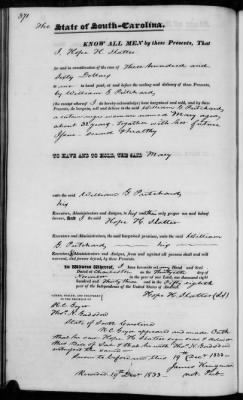 371
The State of South-Carolina.
KNOW ALL MEN by these Presents, That
I Hope H. Slatter
for and in consideration of the sum of Three Hundred and
Fifty Dollars
to me in hand paid, at and before the sealing and delivery of these Presents,
by William G Pritchard
(the receipt whereof I do hereby acknowledge) have bargained and sold, and by these
Presents, do bargain, sell and deliver to the said William G Pritchard,
a woman named Mary aged
about 32 years, together with her future
Issue - sound & healthy
TO HAVE AND TO HOLD, THE SAID Mary
unto the said William G Pritchard
his
Executors, Administrators and Assigns, to his and their only proper use and behoof
forever. And I the said Hope H. Slatter
my
Executors and Administrators, the said bargained premises, unto the said William
G Pritchard his
Executors, Administrators and Assigns, from and against all persons shall and will
warrant, and forever defend, by these Presents.
In Witness Whereof, I have hereunto set my Hand and Seal
Dated at Charleston on the Thirtieth day of
November in the year of our Lord, one thousand eight
hundred and Thirty Three and in the Fifty eighth
year of the Independence of the United States of America.
SIGNED, SEALED, AND DELIVERED
IN THE PRESENCE OF
Hope H. Slatter (LS)
R C Geyer
Thos. N. Gadsden
State of South Carolina
R. C. Geyer appeared and made Oath
that he saw Hope H. Slatter sign seal & deliver
this Bill of Sale & that he with Thos. N. Gadsden
witnessed the same
Sworn to before me this 19th Decr 1833
James
Not. Pub.
Recorded 19th Decr 1833